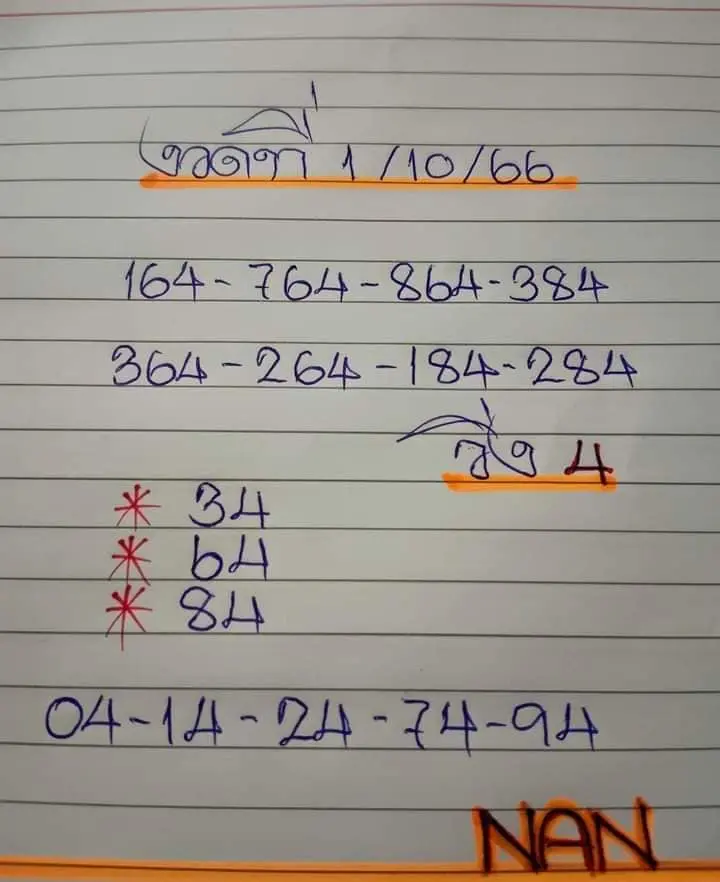 งวดที่ 1/10/66
164-764-864-384
364-264-184-284
วิ่ง 4
* 34
* 64
* 84
04-14-24-74-94
NAN